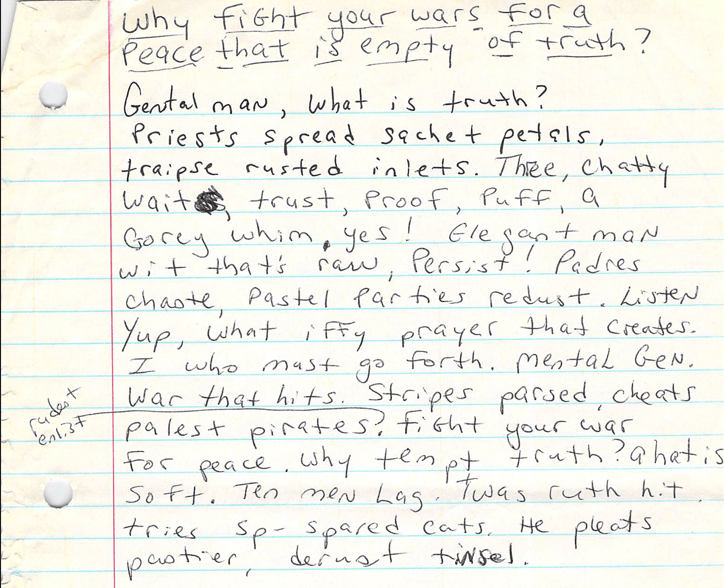 Why fight your wars for a
Peace that is empty of truth?
Gental man, what is truth?
Priests spread sachet petals,
traipse rusted inlets. Thee, chatty
wait, trust, Proof, Puff, a
Gorey whim, yes! Elegant man
wit that's raw, Persist! Padres
chaste, Pastel Parties redust. Listen
Yup, what iffy prayer that creates.
I who must go forth. Mental Gen.
War that hits. Stripes parsed, cheats
rudest
enlist
palest pirates? Fight your war
for peace. Why tempt truth? a hat is
Soft. Ten men Lag. Twas ruth hit
tries sp- spared cats. He pleats
pastier, derust tinsel.